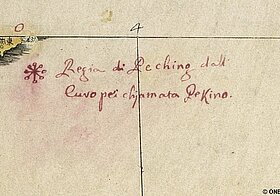 0 4
Regia di Pcching dall
Euro pei chjamata Pekino.
© ONB